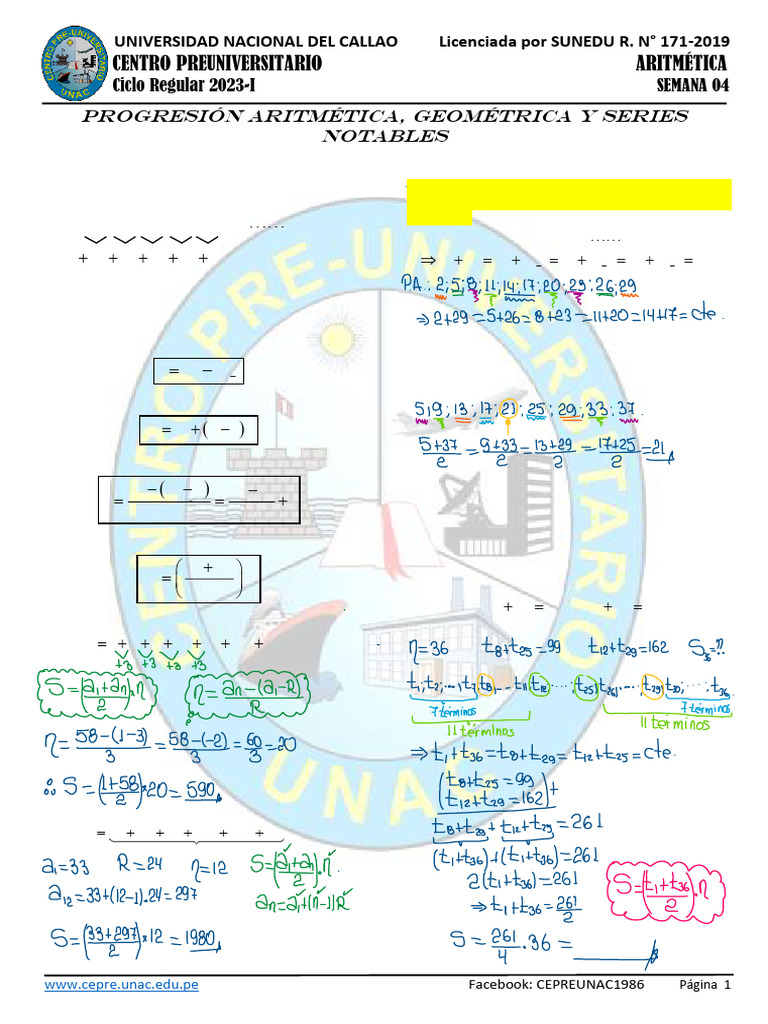 UNIVERSIDAD NACIONAL DEL CALLAO Licenciada por SUNEDU R. N° 171-2019
CENTRO PREUNIVERSITARIO ARITMÉTICA
Ciclo Regular 2023-I SEMANA 04
PROGRESIÓN ARITMÉTICA, GEOMÉTRICA Y SERIES
NOTABLES
CENTRO PRE-UNIVERSITARIO
UNAC
......
+ + + + +
= − _
= +( − )
= −( − ) = − +
= ( + )
= + + + + + +
+3 +3 +3 +3
S=(a1+an/2).n n=an−(a1−R)/R
n=58−(1−3)/3=58−(−2)/3=60/3=20
∴ S=(1+58/2)*20=590
= + + + + +
a1=33 R=24 n=12 S=(a1+an/2).n
a12=33+(12−1).24=297 an=a1+(n−1)R
S=(33+297/2)*12=1980
......
⇒ + = + _ = + _ = + _ =
P.A.: 2;5;8;11;14;17;20;23;26;29
⇒2+29=5+26=8+23=11+20=14+17=cte.
5;9;13;17;21;25;29;33;37.
5+37/2=9+33/2=13+29/2=17+25/2=21
+ = + =
n=36 t8+t25=99 t12+t29=162 S36=??
t1,t2;...,t7,t8,...t11,t12,...,t25,t26,...,t29,t30,...,t36.
7 términos 7 términos
11 términos 11 términos
⇒t1+t36=t8+t29=t12+t25=cte.
(t8+t25=99)+
(t12+t29=162)
t8+t29+t12+t25=261
(t1+t36)+(t1+t36)=261
2(t1+t36)=261
⇒t1+t36=261/2
S=(t1+t36/2).n
S=261/4.36=
www.cepre.unac.edu.pe Facebook: CEPREUNAC1986 Página 1